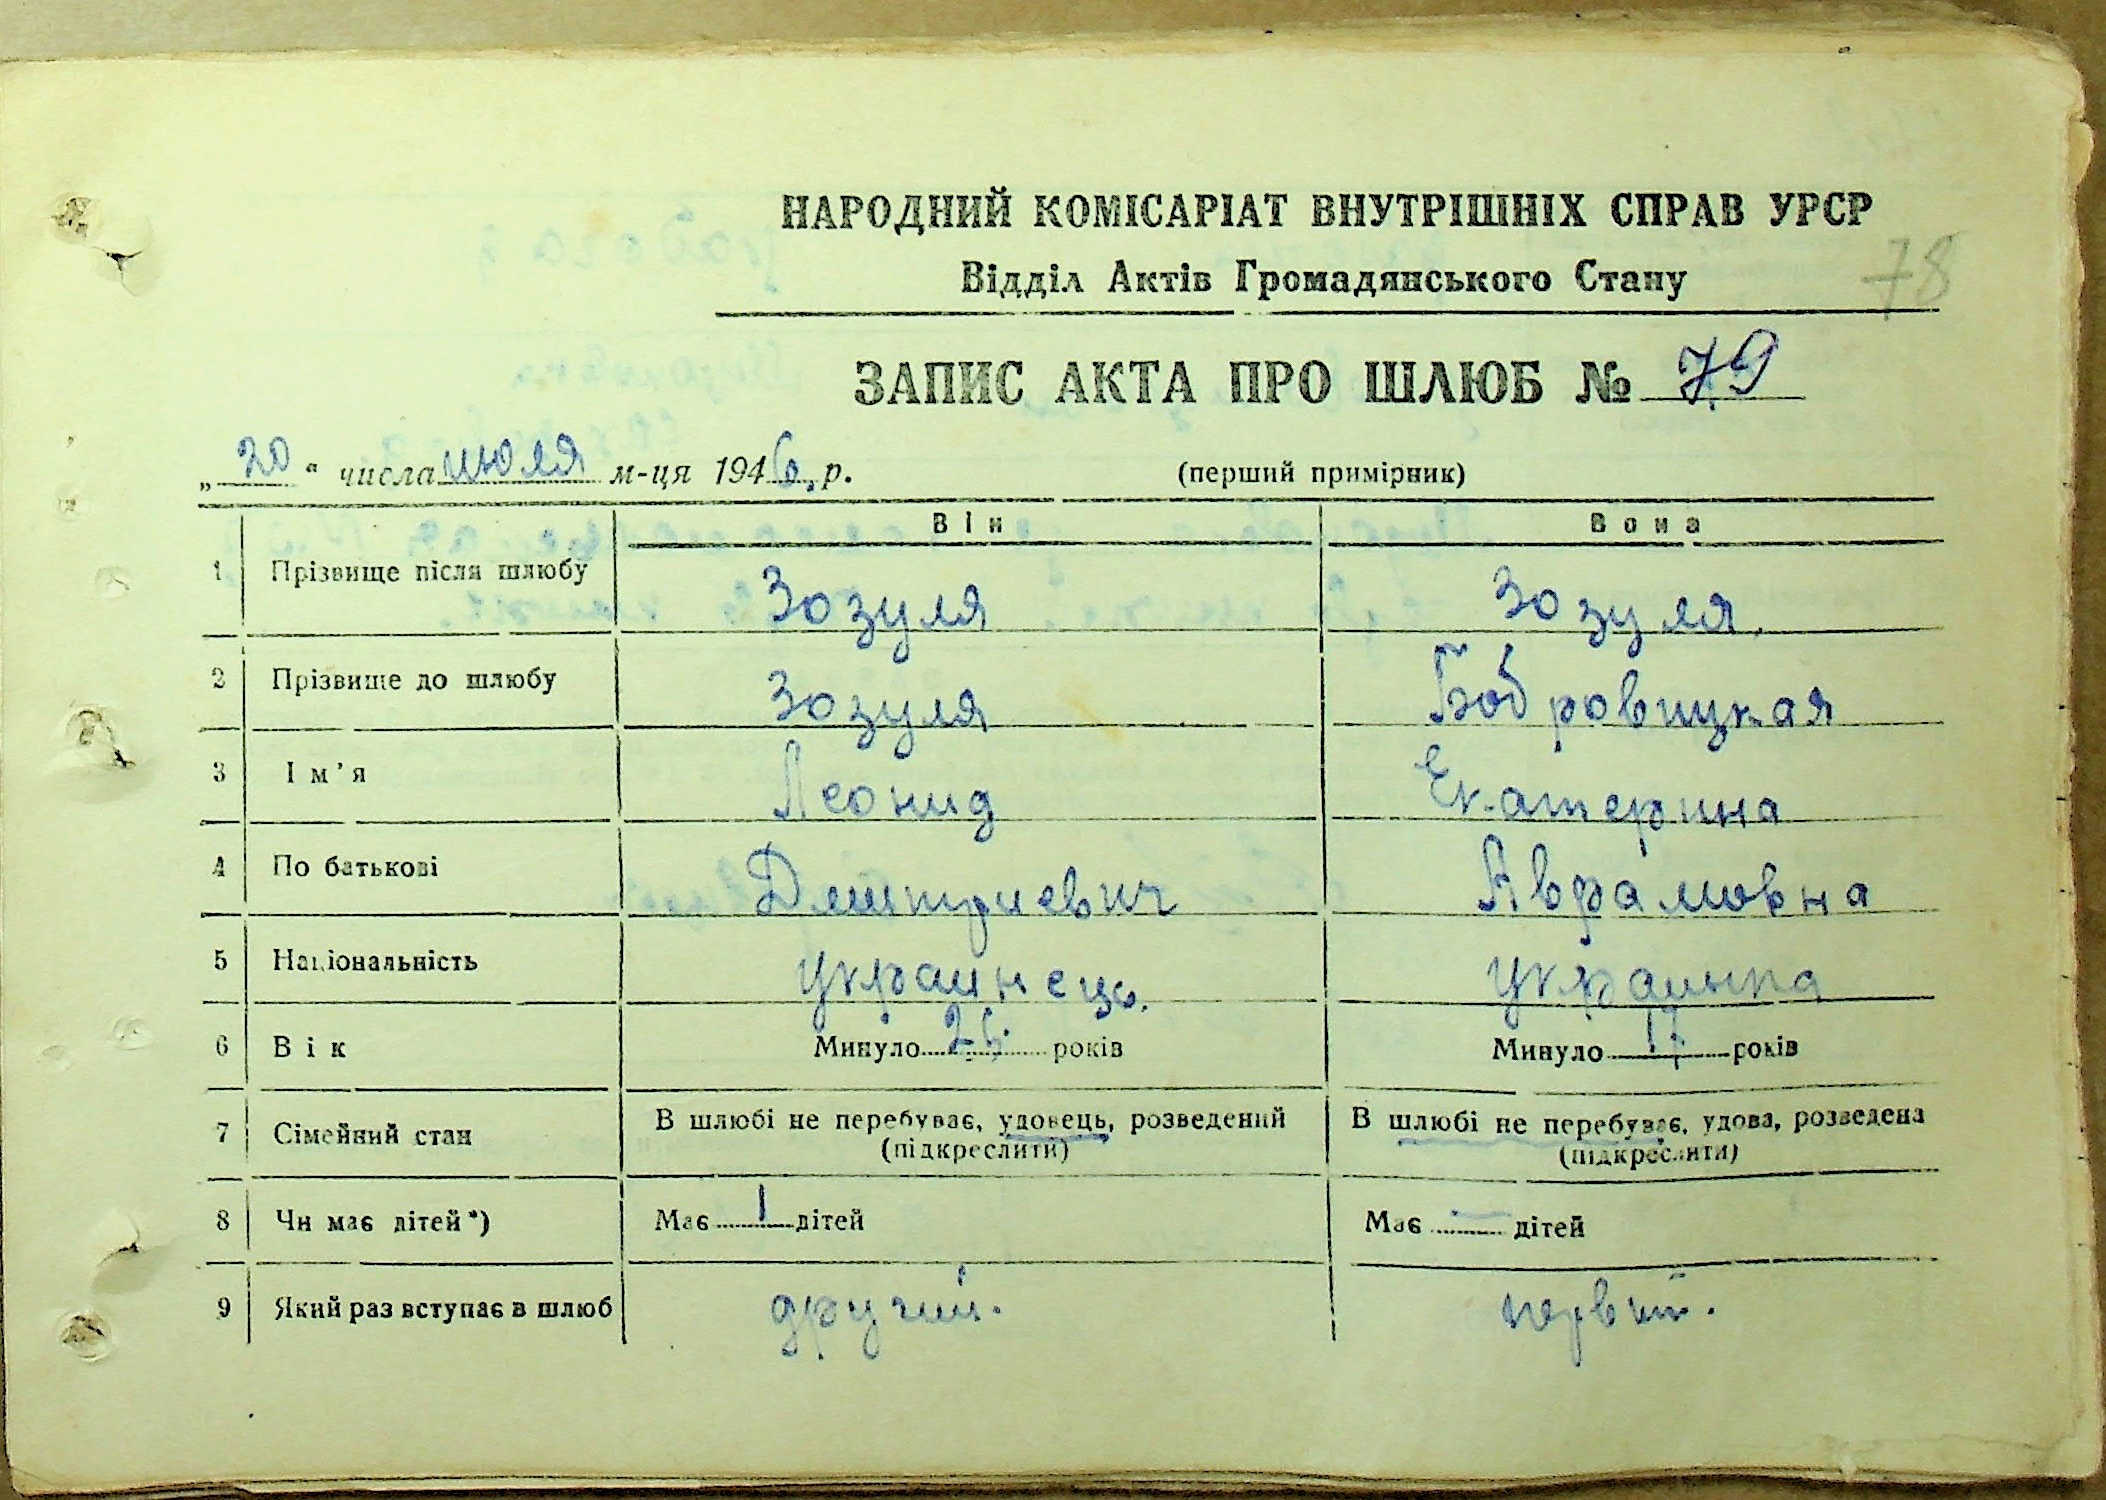 НАРОДНИЙ КОМІСАРІАТ ВНУТРІШНІХ СПРАВ УРСР
Відділ Актів Громадянського Стану
78
ЗАПИС АКТА ПРО ШЛЮБ № 79
„20“ числа июля м-ця 1946 р. (перший примірник)
Він Вона
1 Прізвище після шлюбу Зозуля Зозуля.
2 Прізвище до шлюбу Зозуля Бобровицкая
3 Ім'я Леонид Екатерина
4 По батькові Дмитриевич Аврамовна
5 Національність украинець. украинка
6 Вік Минуло років Минуло 17 років
7 Сімейний стан В шлюбі не перебуває, удовець, розведений В шлюбі не перебуває, удова, розведена
(підкреслити) (підкреслити)
8 Чи має дітей*) Має 1 дітей Має — дітей
9 Який раз вступає в шлюб другий. первий.